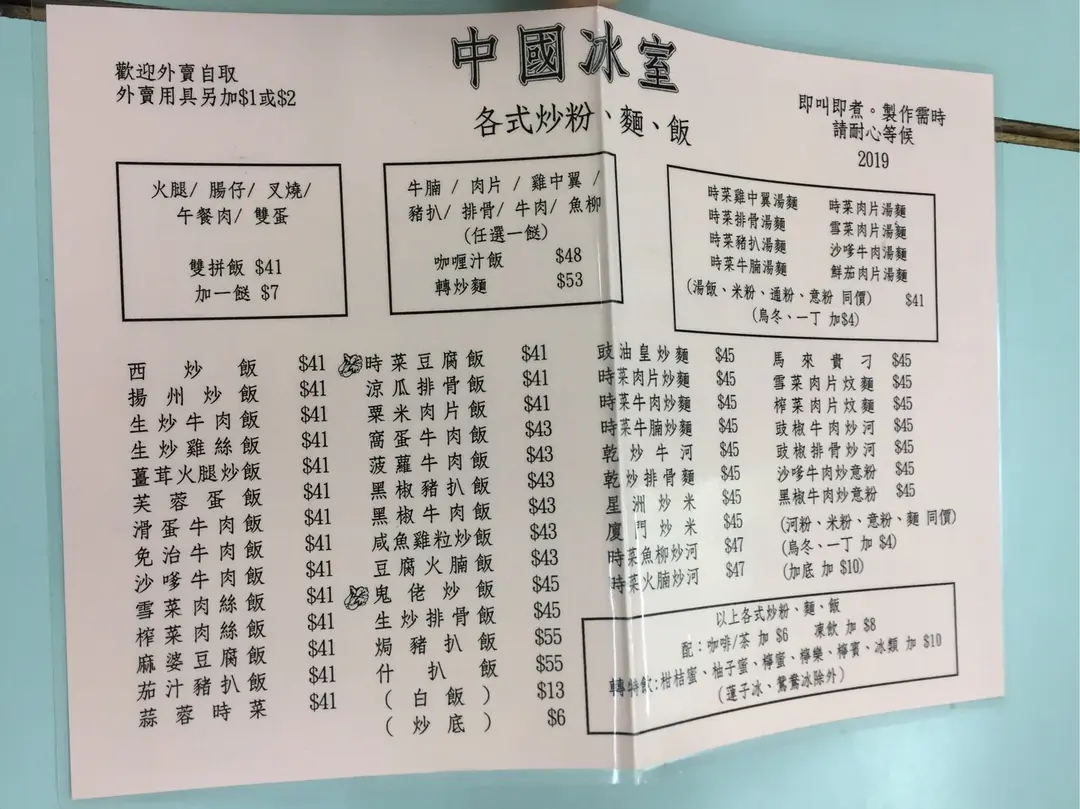 中國冰室
歡迎外賣自取
外賣用具另加$1或$2
各式炒粉、麵、飯
即叫即煮。製作需時
請耐心等候
2019
火腿/ 腸仔/ 叉燒/
午餐肉/ 雙蛋
雙拼飯 $41
加一餸 $7
牛腩 / 肉片 / 雞中翼 /
豬扒/ 排骨/ 牛肉/ 魚柳
(任選一餸)
咖喱汁飯 $48
轉炒麵 $53
時菜雞中翼湯麵 時菜肉片湯麵
時菜排骨湯麵 雪菜肉片湯麵
時菜豬扒湯麵 沙嗲牛肉湯麵
時菜牛腩湯麵 鮮茄肉片湯麵
(湯飯、米粉、通粉、意粉 同價) $41
(烏冬、一丁 加$4)
西炒飯 $41
揚州炒飯 $41
生炒牛肉飯 $41
生炒雞絲飯 $41
薑茸火腿炒飯 $41
芙蓉蛋飯 $41
滑蛋牛肉飯 $41
免治牛肉飯 $41
沙嗲牛肉飯 $41
雪菜肉絲飯 $41
榨菜肉絲飯 $41
麻婆豆腐飯 $41
茄汁豬扒飯 $41
蒜蓉時菜 $41
時菜豆腐飯 $41
涼瓜排骨飯 $41
粟米肉片飯 $41
窩蛋牛肉飯 $43
菠蘿牛肉飯 $43
黑椒豬扒飯 $43
黑椒牛肉飯 $43
咸魚雞粒炒飯 $43
豆腐火腩飯 $43
鬼佬炒飯 $45
生炒排骨飯 $45
焗豬扒飯 $55
什扒飯 $55
(白飯) $13
(炒底) $6
豉油皇炒麵 $45
時菜肉片炒麵 $45
時菜牛肉炒麵 $45
時菜牛腩炒麵 $45
乾炒牛河 $45
乾炒排骨麵 $45
星洲炒米 $45
廈門炒米 $45
時菜魚柳炒河 $47
時菜火腩炒河 $47
馬來貴刁 $45
雪菜肉片炆麵 $45
榨菜肉片炆麵 $45
豉椒牛肉炒河 $45
豉椒排骨炒河 $45
沙嗲牛肉炒意粉 $45
黑椒牛肉炒意粉 $45
(河粉、米粉、意粉、麵 同價)
(烏冬、一丁 加 $4)
(加底 加 $10)
以上各式炒粉、麵、飯
配:咖啡/茶 加 $6 凍飲 加 $8
轉特飲:柑桔蜜、柚子蜜、檸蜜、檸樂、檸賓、冰類 加 $10
(蓮子冰、鴛鴦冰除外)